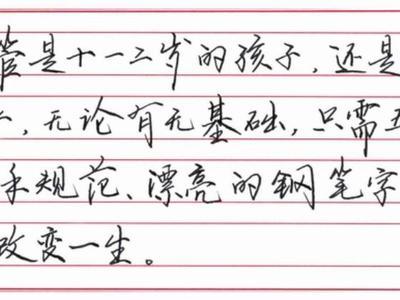 管是十一二岁的孩子,还是
,无论有无基础,只需五
手规范、漂亮的钢笔字
改变一生。